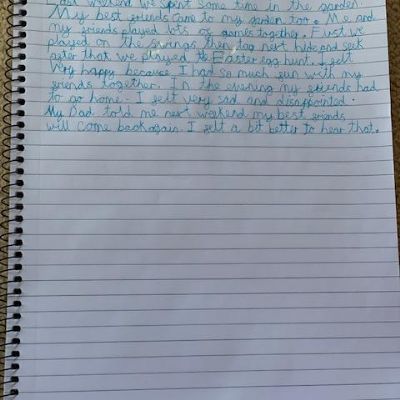 Last weekend we spent some time in the garden.
My best friends came to my garden too. Me and
my friends played lots of games together. First we
played on the swings then tag next hide and seek
after that we played the Easter egg hunt. I felt
very happy because I had so much fun with my
friends together. In the evening my friends had
to go home. I felt very sad and disappointed.
My Dad told me next weekend my best friends
will come back again. I felt a bit better to hear that.